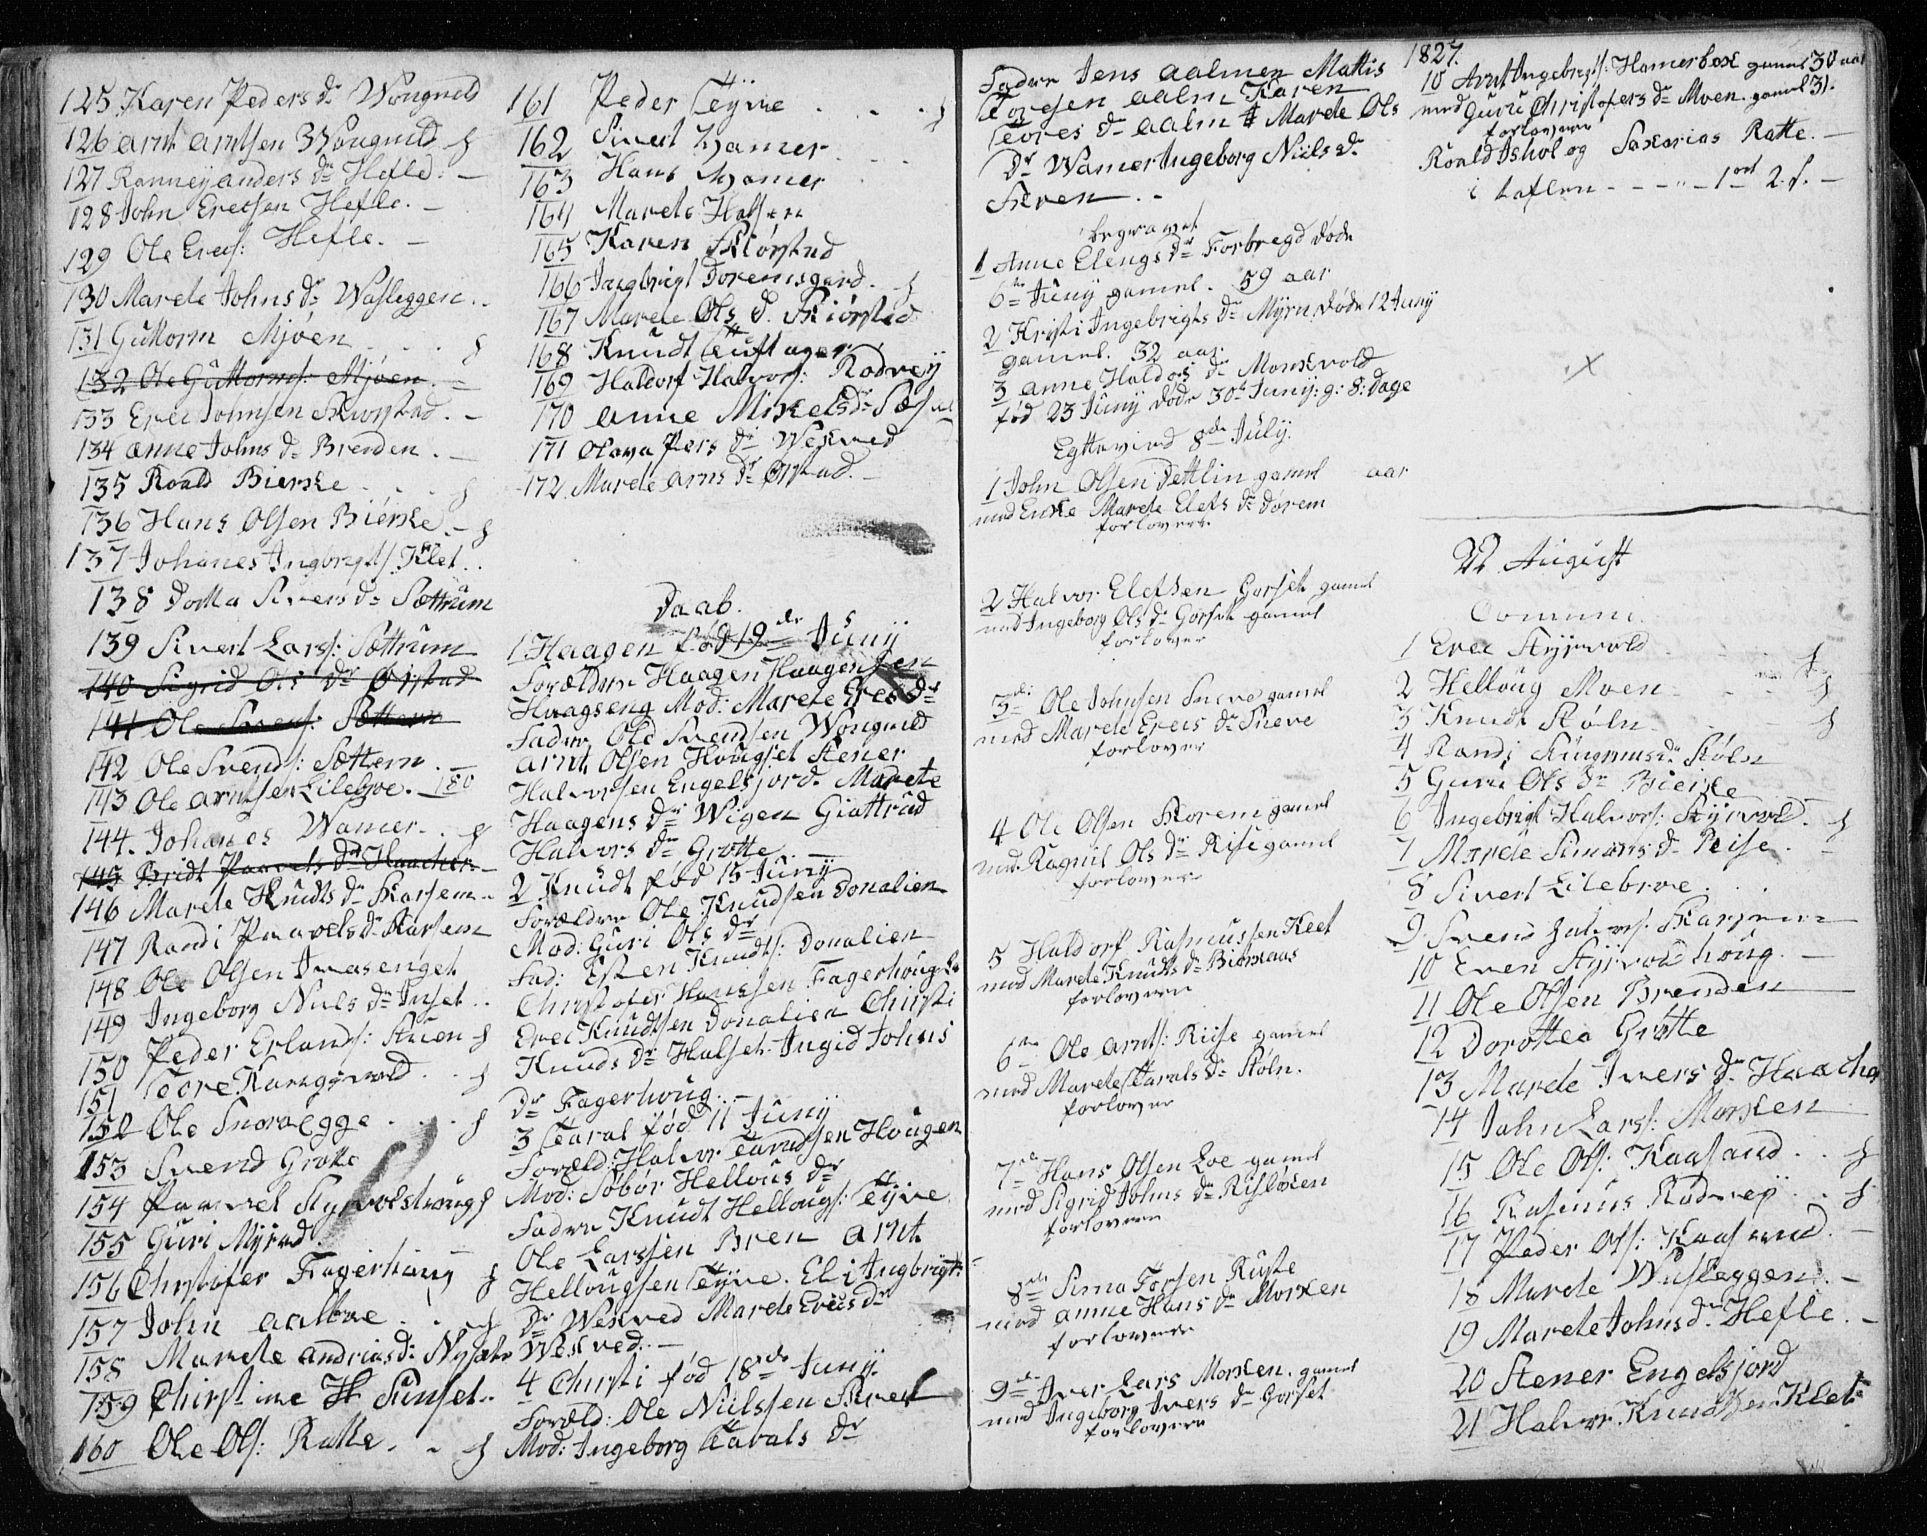 125 Karen Peders dr Wongneld
126 arnt arntsen Wongneld
127 Ranney anders dr Hefle. —
128 John Erecsen Hefle. —
129 Ole Erecs: Hefle. —
130 Marete Johns dr Wasleggen.
131 Guttorm Mjöen
132 Ole Guttorms: Mjöen
133 Erec Johnsen
134 anne Johns dr Brenden. —
135 Roald Bierke
136 Hans Olsen Bierke
137 Johanes Ingbrigts: Klet.
138 Dortha Sivers dr Sættrum
139 Sivert Lars: Sættrum
140 Sigrid Ols dr Örstad
141 Ole Svens: Sættern
142 Ole Svends: Sættern
143 Ole arntsen Lilebroe.
144. Johanes Wamer
145 Bridt Paavels dr Haacker
146 Marete Knudts dr Skarsem
147 Randi Paavels dr Karsem
148 Ole Olsen Ivasenget
149 Ingeborg Niels dr Inset
150 Peder Erlands: Stuen
151 Tore
152 Ole Snoreegge
153 Svend Grotte
154 Paavel Styrvoldshoug
155 Guri Myren
156 Christofer Fagerhaug
157 John aalbue
158 Marete andrias dr
159 Christine H Sunset
160 Ole Ols: Ratte
161 Peder Tyve
162 Sivert Hamer
163 Hans Hamer
164 Marete Halsen
165 Karen Skiörstad
166 Ingbrigt Doremsgard
167 Marete Ols d. Skiörstad
168 Knudt
169 Haldorf Halvors: Rodvey
170 anne Mikels dr
171 Olava Pers dr Wekved
172 Marete arns dr Örstad. —
Daab.
1 Haagen född 19de Juny
Forældre Haagen Haagensen
Haagseng Mod: Marete Erecs dr
Fadre Ole Svendsen Wongneld
arnt Olsen Hougset Stener
Halvorsen Engelsjord. Marete
Haagens dr Wigen Giattrud
Halvors dr Grotte
2 Knudt fød 15 Juny
Forældre Ole Knudsen Donalien
Mod: Guri Ols dr
Fad: Esten Knudts: Donalien
Christofer Hanssen Fagerhoug
Erec Knudtsen Donalien Christi
Knuds dr Halset Ingid Johns
Dr Fagerhoug.
3 Taral fød 11 Juny
Foræld: Halvor Haugen
Mod: Söbör Hellous dr
Fadre Knudt Hellougs: Tyve
Ole Larssen Bren arnt
Hellougsen Tyve. Eli Ingbrigt
Dr Wekved Marete Erecs dr
Wekved. —
4 Christi fød 18de Juny.
Foræld: Ole Nielssen
Mod: Ingeborg Tarals dr
Fadre Jens aalmen Mattis
aalm Karen
Tores dr aalm Marete Ols
Dr Wamer Ingeborg Niels dr
begravet
1 Anne Elengs dr Forbregd døde
6te Juny gamel. 59 aar
2 Kristi Ingebrigts dr Myrn døde 12 Juny
gamel. 32 aar.
3 anne Haldors dr Monkvold
fød 23 Juny døde 30te Juny: g: 8: dage
Egtevied 8de July.
1 John Olsen Dettlin gamel aar
med Enke Marete Elefs dr Dörem
forlovere
2 Halvor Elefsen Gorset gamel
med Ingeborg Ols dr Gorset gamel
forlover
3de Ole Johnsen Sneve gamel
med Marete Erecs dr Sneve
forlover
4 Ole Olsen gamel
med Ragnil Ols dr Rise gamel
forlover
5 Haldorf Rasmussen Keet
med Marete Knudts dr
forlovere
6te Ole arnts: Riise gamel
med Marete Tarals dr Støln.
forlover
7de Hans Olsen Loe gamel
med Sigrid Johns dr Risløken
forlovere
8de Simo Forsen Ruste
med anne Hans dr Morken
forlovere
9de Iver Lars Morken. gamel
med Ingeborg Ivers dr Gorset
forlovere
1827.
10 Arnt Ingebrigts: Hamerbek gamel 30 aar
med Guru Christofers dr Moen. gamel 31.
forlovere
Roald Ishol og Sakarias Ratte. —
i taflen - - - " - 1 ort 2. s. —
22 August
Comuni.
1 Erec Styrvold
2 Helloug Moen
3 Knudt Støln
4 Randi Støln
5 Guru Ols dr Bierke
6 Ingebrigt Halvors: Styrvold.
7 Marete Simons dr Reise
8 Sivert Lilebroe
9 Svend Halvors. Skarsem
10 Even Styrvoldhoug. —
11 Ole Olsen Brenden
12 Dorottea Grotte
13 Marete Ivers dr
14 John Lars: Morken
15 Ole Ols: Kaasand
16 Rasmus Rodvey
17 Peder Ols: Kaasand
18 Marete Wasleggen. —
19 Marete Johns dr Hefle. —
20 Stener Engelsjord
21 Halvor Knudtsen Klet